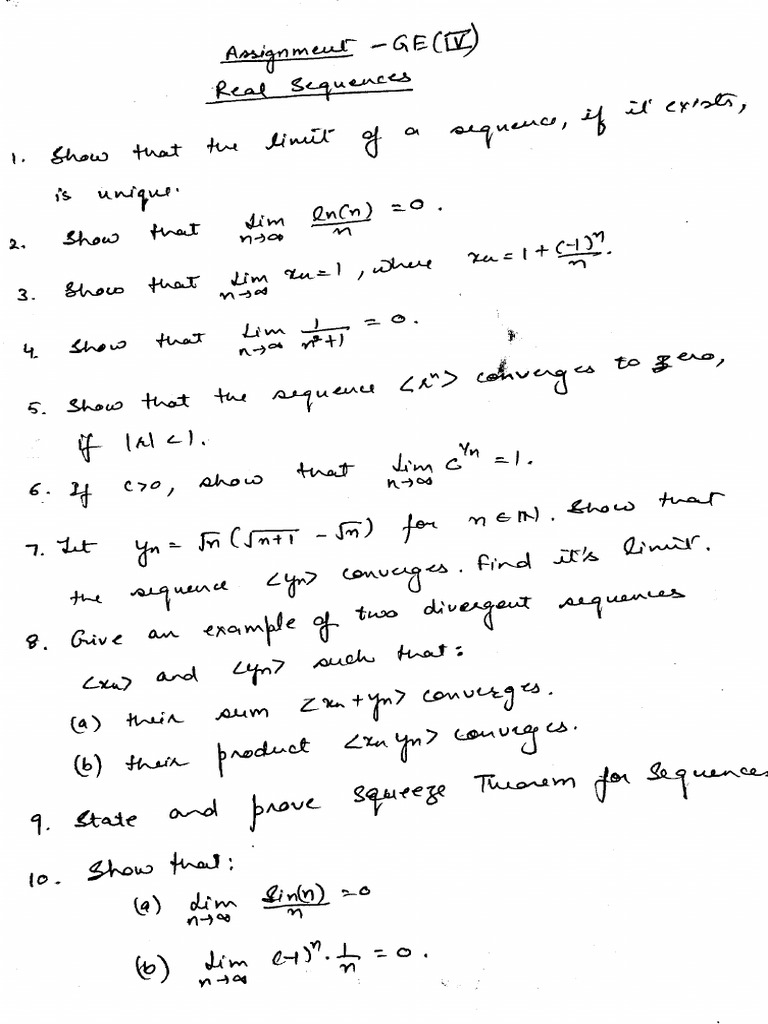 Assignment - GE(IV)
Real Sequences
1. Show that the limit of a sequence, if it exists,
is unique.
2. Show that Lim n→∞ ln(n)/n = 0.
3. Show that Lim n→∞ xn = 1, where xn = 1 + (-1)^n/n.
4. Show that Lim n→∞ 1/(n²+1) = 0.
5. Show that the sequence <r^n> converges to zero,
if |r| < 1.
6. If c>0, show that Lim n→∞ c^(1/n) = 1.
7. Let yn = √n (√(n+1) - √n) for n ∈ ℕ. Show that
the sequence <yn> converges. Find it's limit.
8. Give an example of two divergent sequences
<xn> and <yn> such that:
(a) their sum <xn + yn> converges.
(b) their product <xn yn> converges.
9. State and prove Squeeze Theorem for Sequences
10. Show that:
(a) Lim n→∞ Sin(n)/n = 0
(b) Lim n→∞ (-1)^n · 1/n = 0.